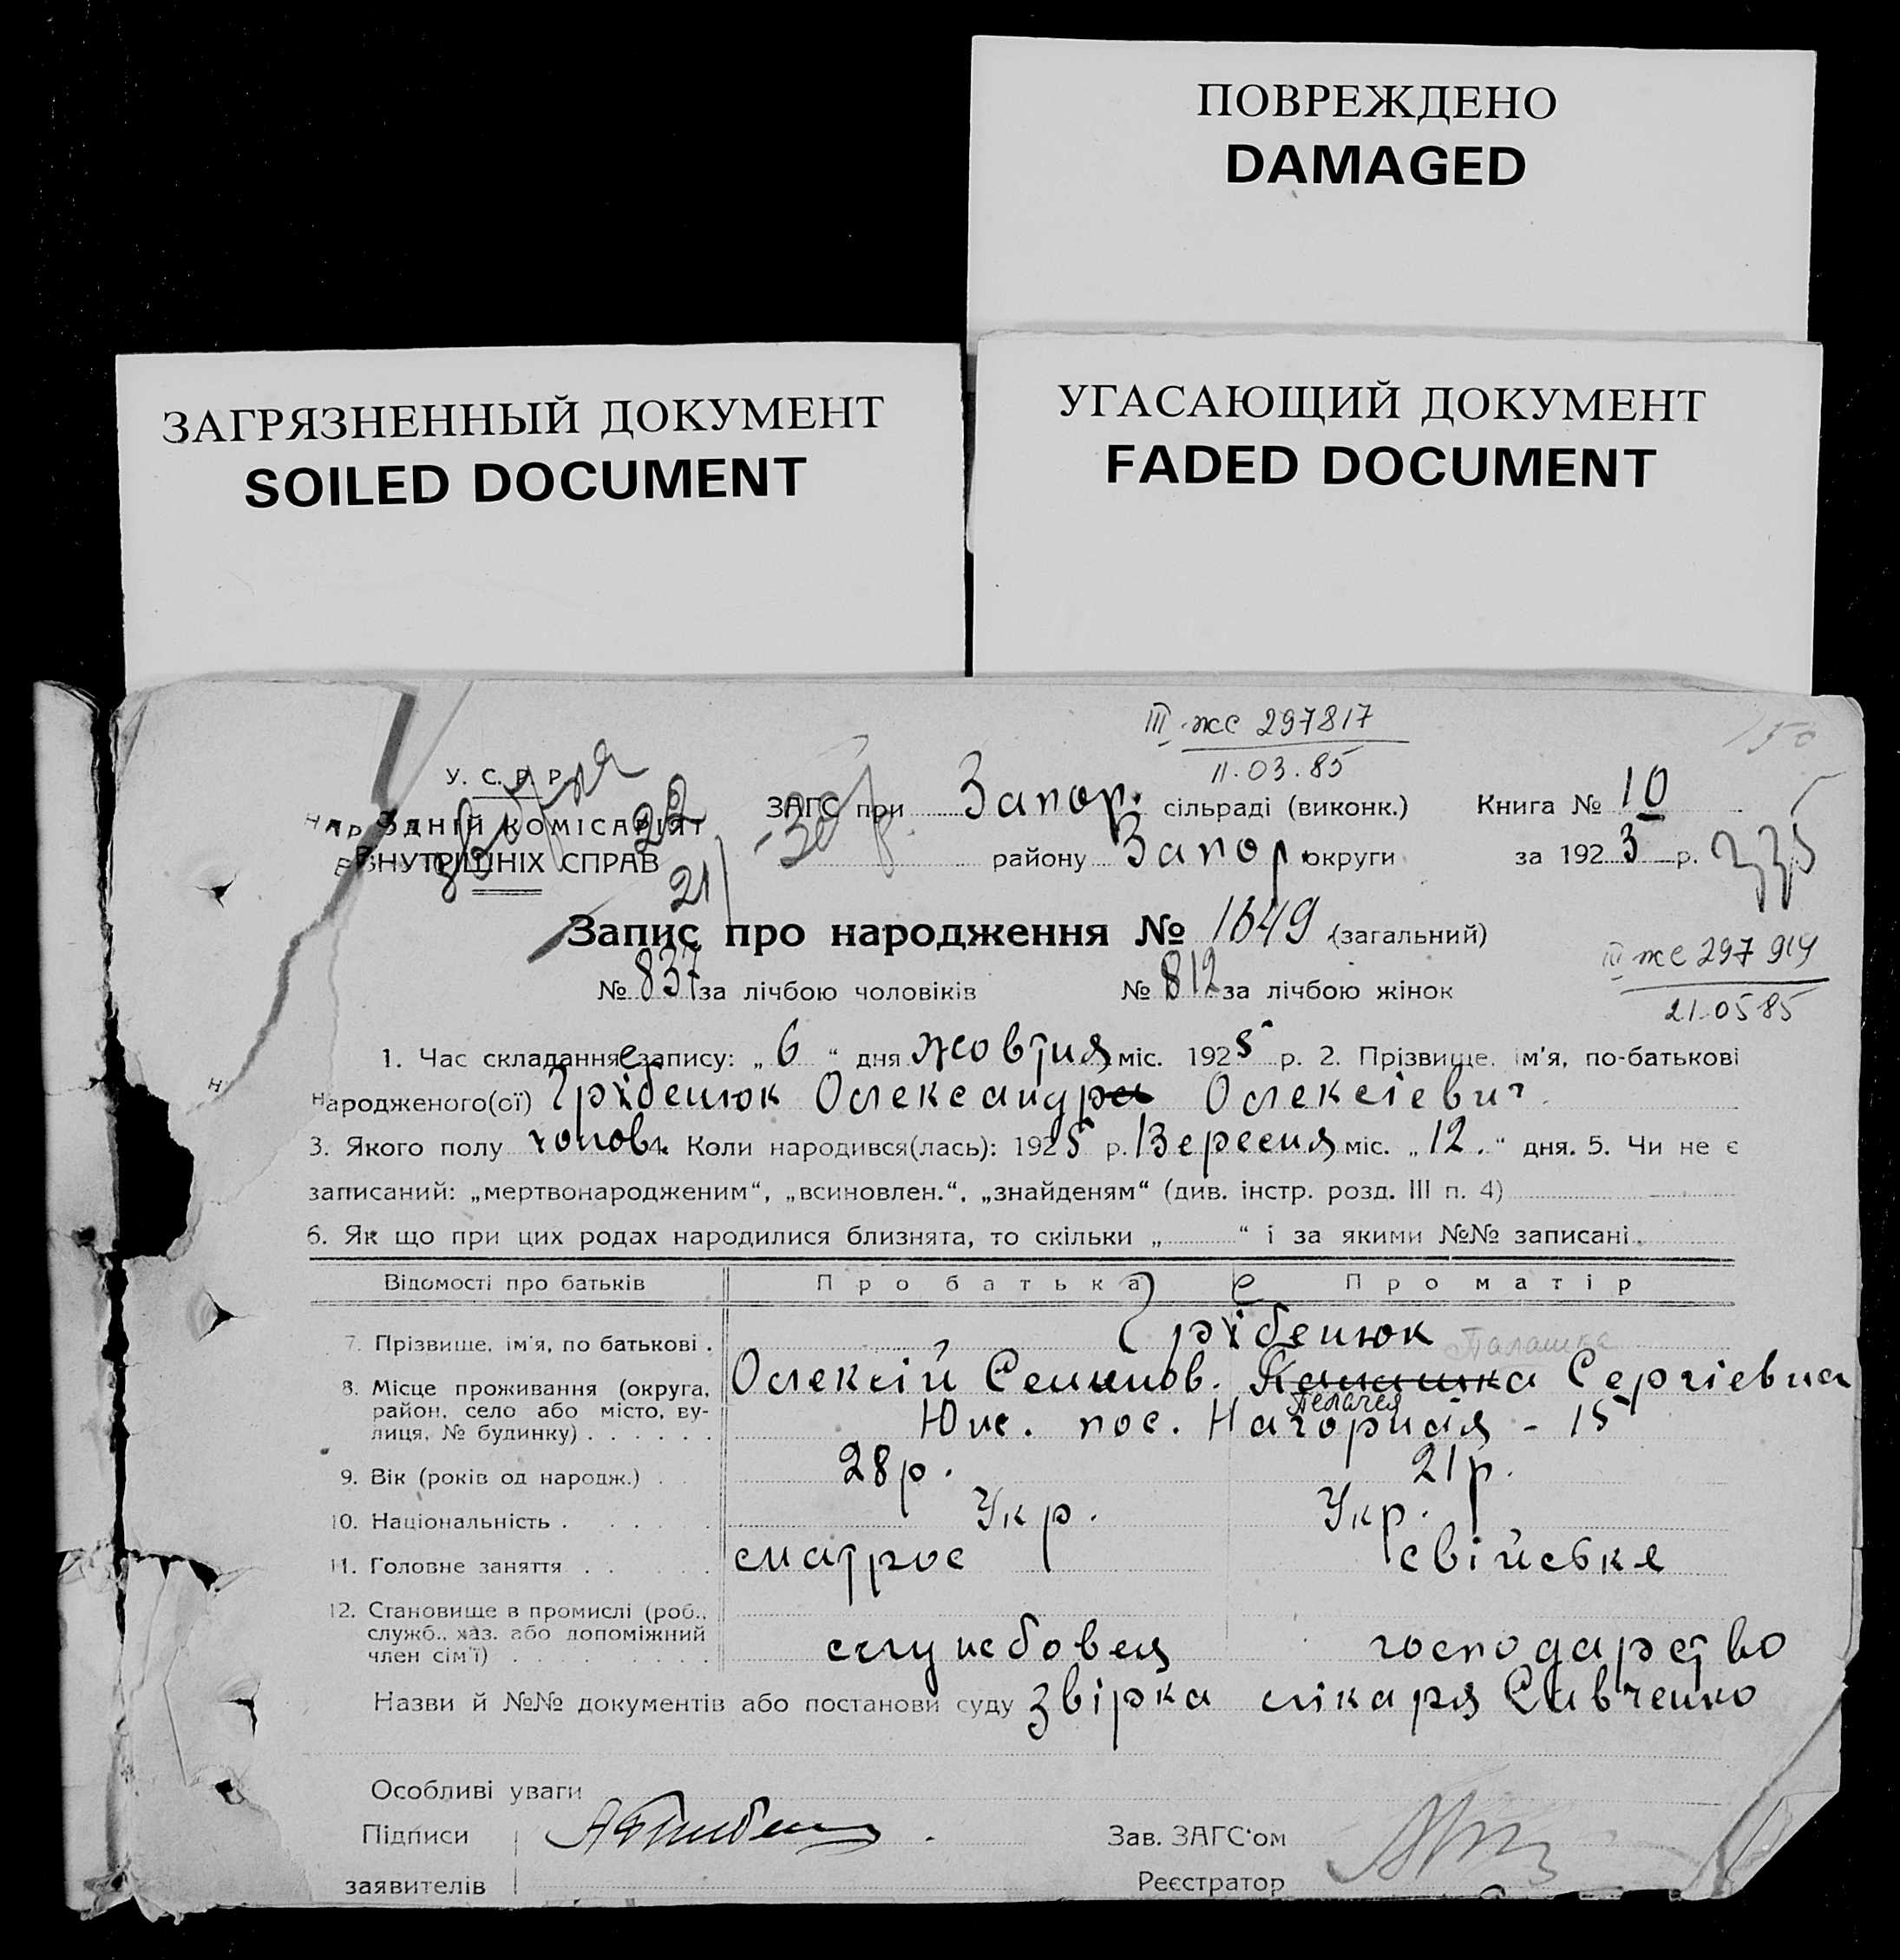 ПОВРЕЖДЕНО
DAMAGED
ЗАГРЯЗНЕННЫЙ ДОКУМЕНТ
SOILED DOCUMENT
УГАСАЮЩИЙ ДОКУМЕНТ
FADED DOCUMENT
III жс 297817
11.03.85
150
У. С. Р. Р.
НАР ДНІЙ КОМІСАРІЯТ
ВНУТРІШНІХ СПРАВ
22
21
ЗАГС при Запор. сільраді (виконк.) Книга № 10
району Запор округи за 1923 р. 335
Запис про народження № 1649 (загальний)
№ 837 за лічбою чоловіків № 812 за лічбою жінок
III жс 297914
21.05 85
1. Час складання запису: „ 6 “ дня жовтня міс. 1925 р. 2. Прізвище, ім'я, по-батькові
е
народженого(ої) Грібенюк Олександра Олексієвич
3. Якого полу чолов. 4. Коли народився(лась): 1925 р. Вересня міс. „ 12. “ дня. 5. Чи не є
записаний: „мертвонародженим“, „всиновлен.“, „знайденям“ (див. інстр. розд. III п. 4)
6. Як що при цих родах народилися близнята, то скільки „ “ і за якими №№ записані
Відомості про батьків Про батька Про матір
е
7. Прізвище, ім'я, по батькові . Грібенюк Палашка
Олексій Семенов. Палашка Сергієвна
Пелагея
8. Місце проживання (округа, район, село або місто, вулиця, № будинку) . . . . . . Юж. пос. Нагорная - 15
9. Вік (років од народж.) . . 28 р. 21 р.
10. Національність . . . . . Укр. Укр.
11. Головне заняття . . . . . матрос свійське
12. Становище в промислі (роб., служб., хаз. або допоміжний член сім'ї) . . . . . . . . службовец господарство
Назви й №№ документів або постанови суду звірка лікаря Савченко
Особливі уваги
Підписи
заявителів
Зав. ЗАГС'ом
Реєстратор